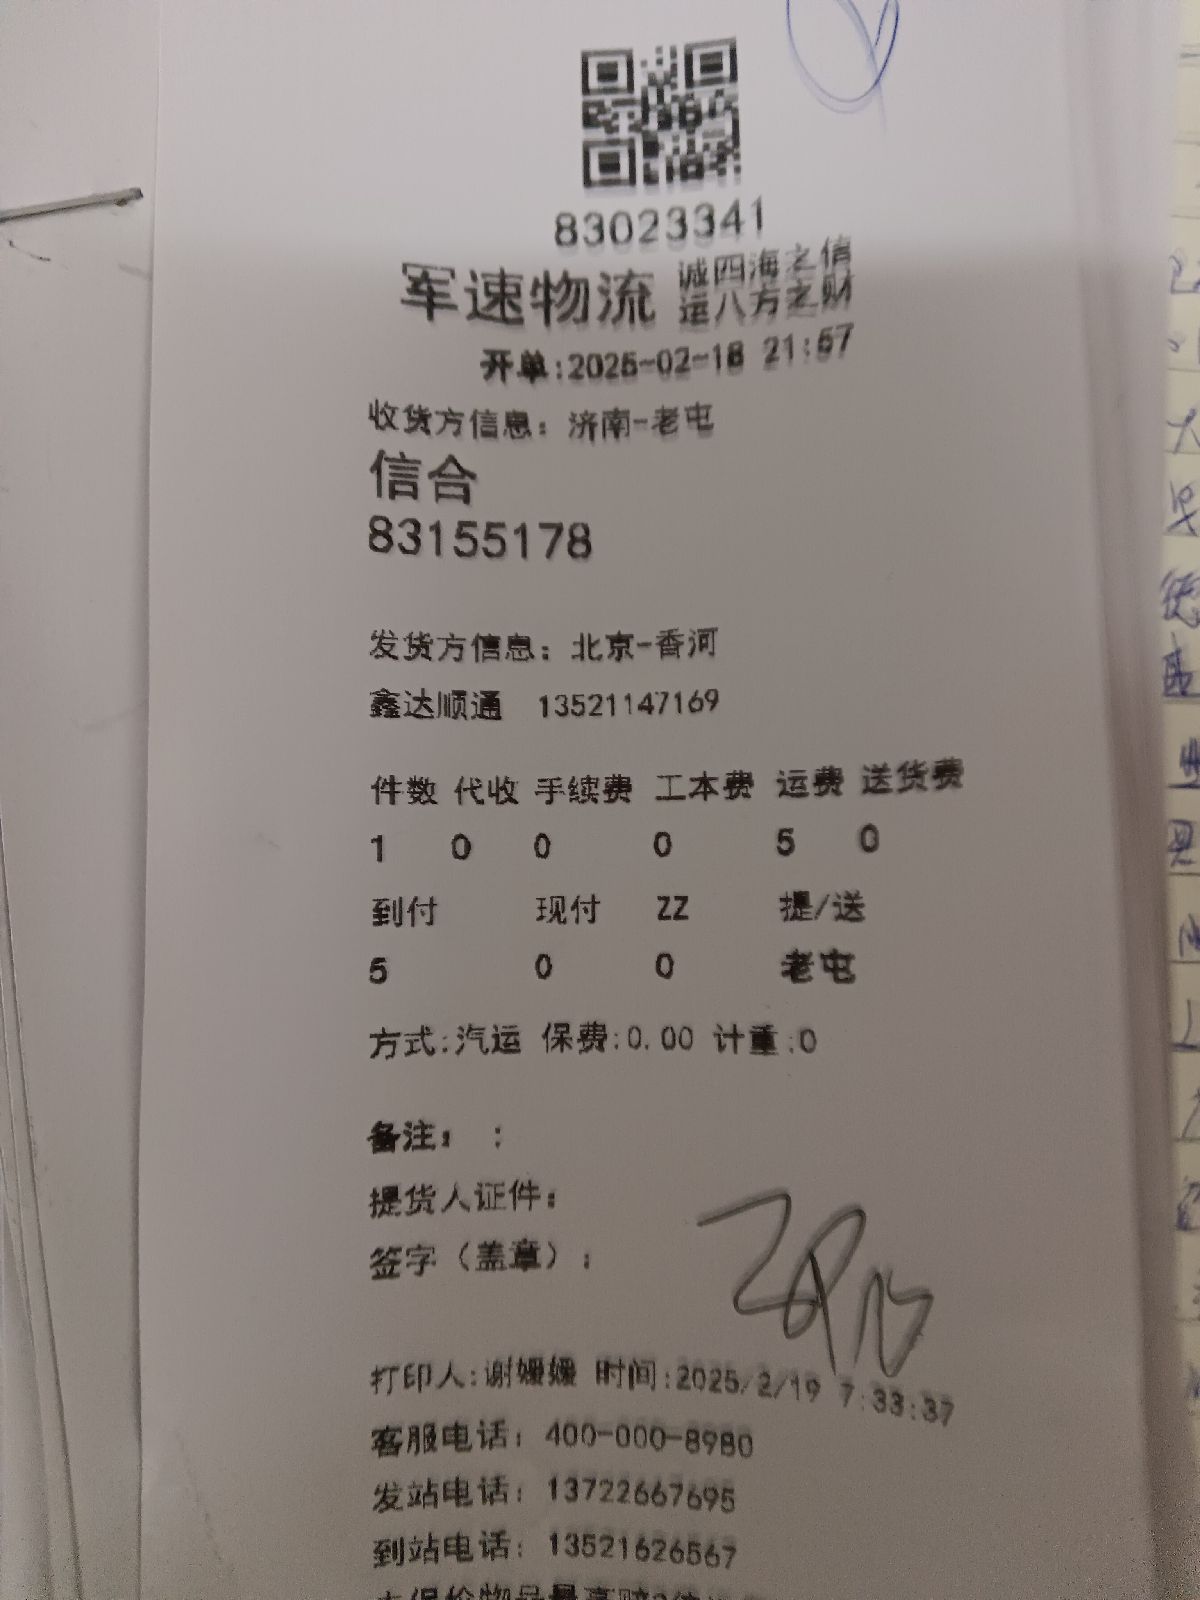 83023341
军速物流 诚四海之信
运八方之财
开单:2025-02-18 21:57
收货方信息：济南-老屯
信合
83155178
发货方信息：北京-香河
鑫达顺通 13521147169
件数 代收 手续费 工本费 运费 送货费
1 0 0 0 5 0
到付 现付 ZZ 提/送
5 0 0 老屯
方式:汽运 保费:0.00 计重:0
备注： :
提货人证件：
签字（盖章）:
打印人:谢媛媛 时间:2025/2/19 7:33:37
客服电话：400-000-8980
发站电话：13722667695
到站电话：13521626567